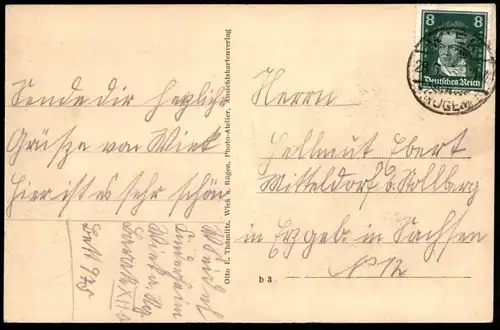 Sende dir herzliche
Grüße von Wiek
hier ist es sehr schön
Kinderheim
Wiek a. Rg.
Baracke XII
Bett
Otto E. Thämlitz, Wiek a. Rügen, Photo-Atelier, Ansichtskartenverlag
b 3
8 8
Deutsches Reich
RÜGEN
Herrn
Hellmut Ebert
Mitteldorf b Stollberg
in Erzgeb. in Sachsen
No 12